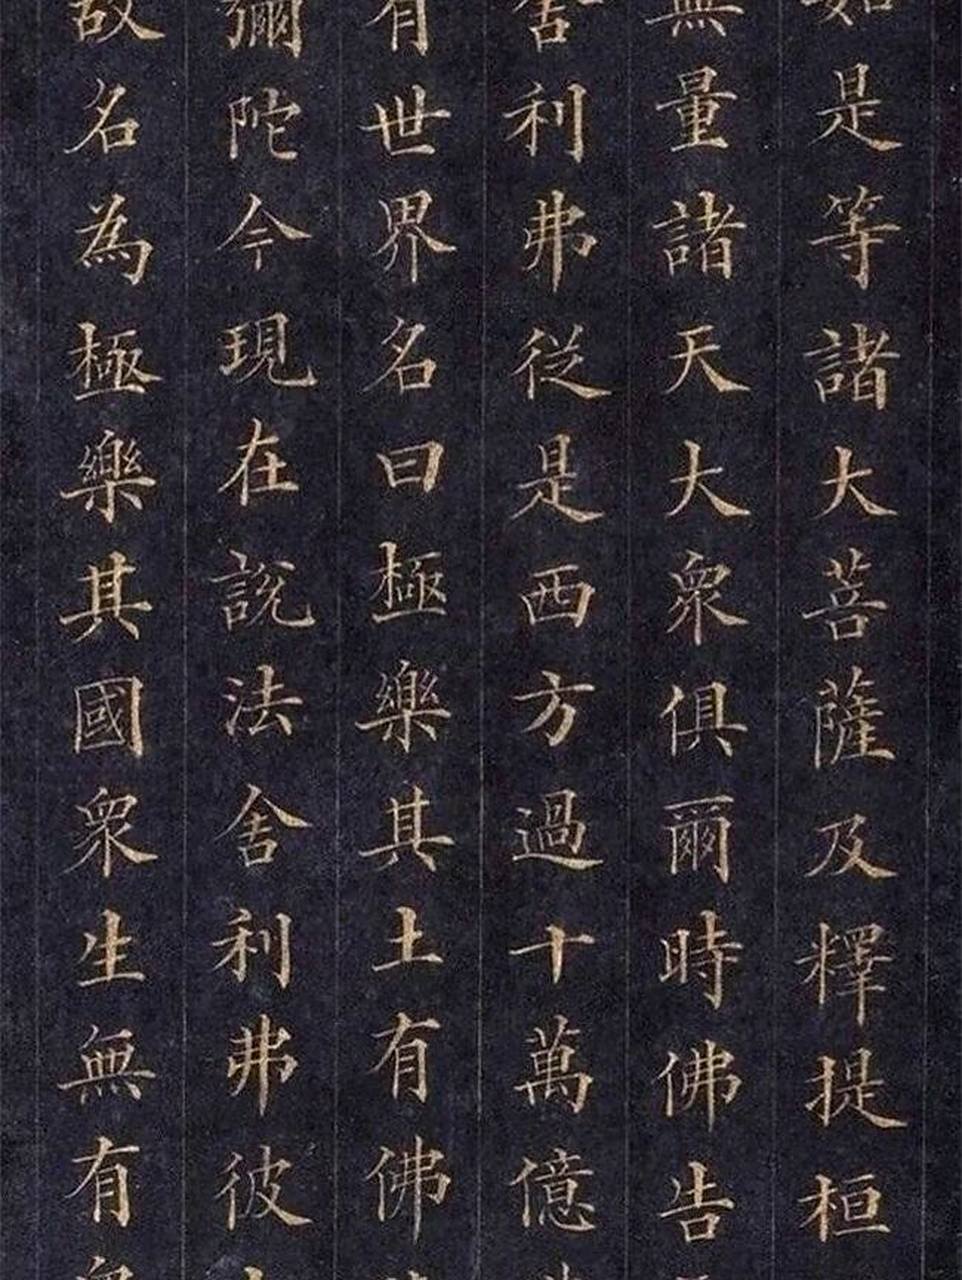 如是等諸大菩薩及釋提桓
無量諸天大衆俱爾時佛告
舍利弗従是西方過十萬億
有世界名曰極樂其土有佛
彌陀今現在説法舍利弗彼
故名為極樂其國衆生無有